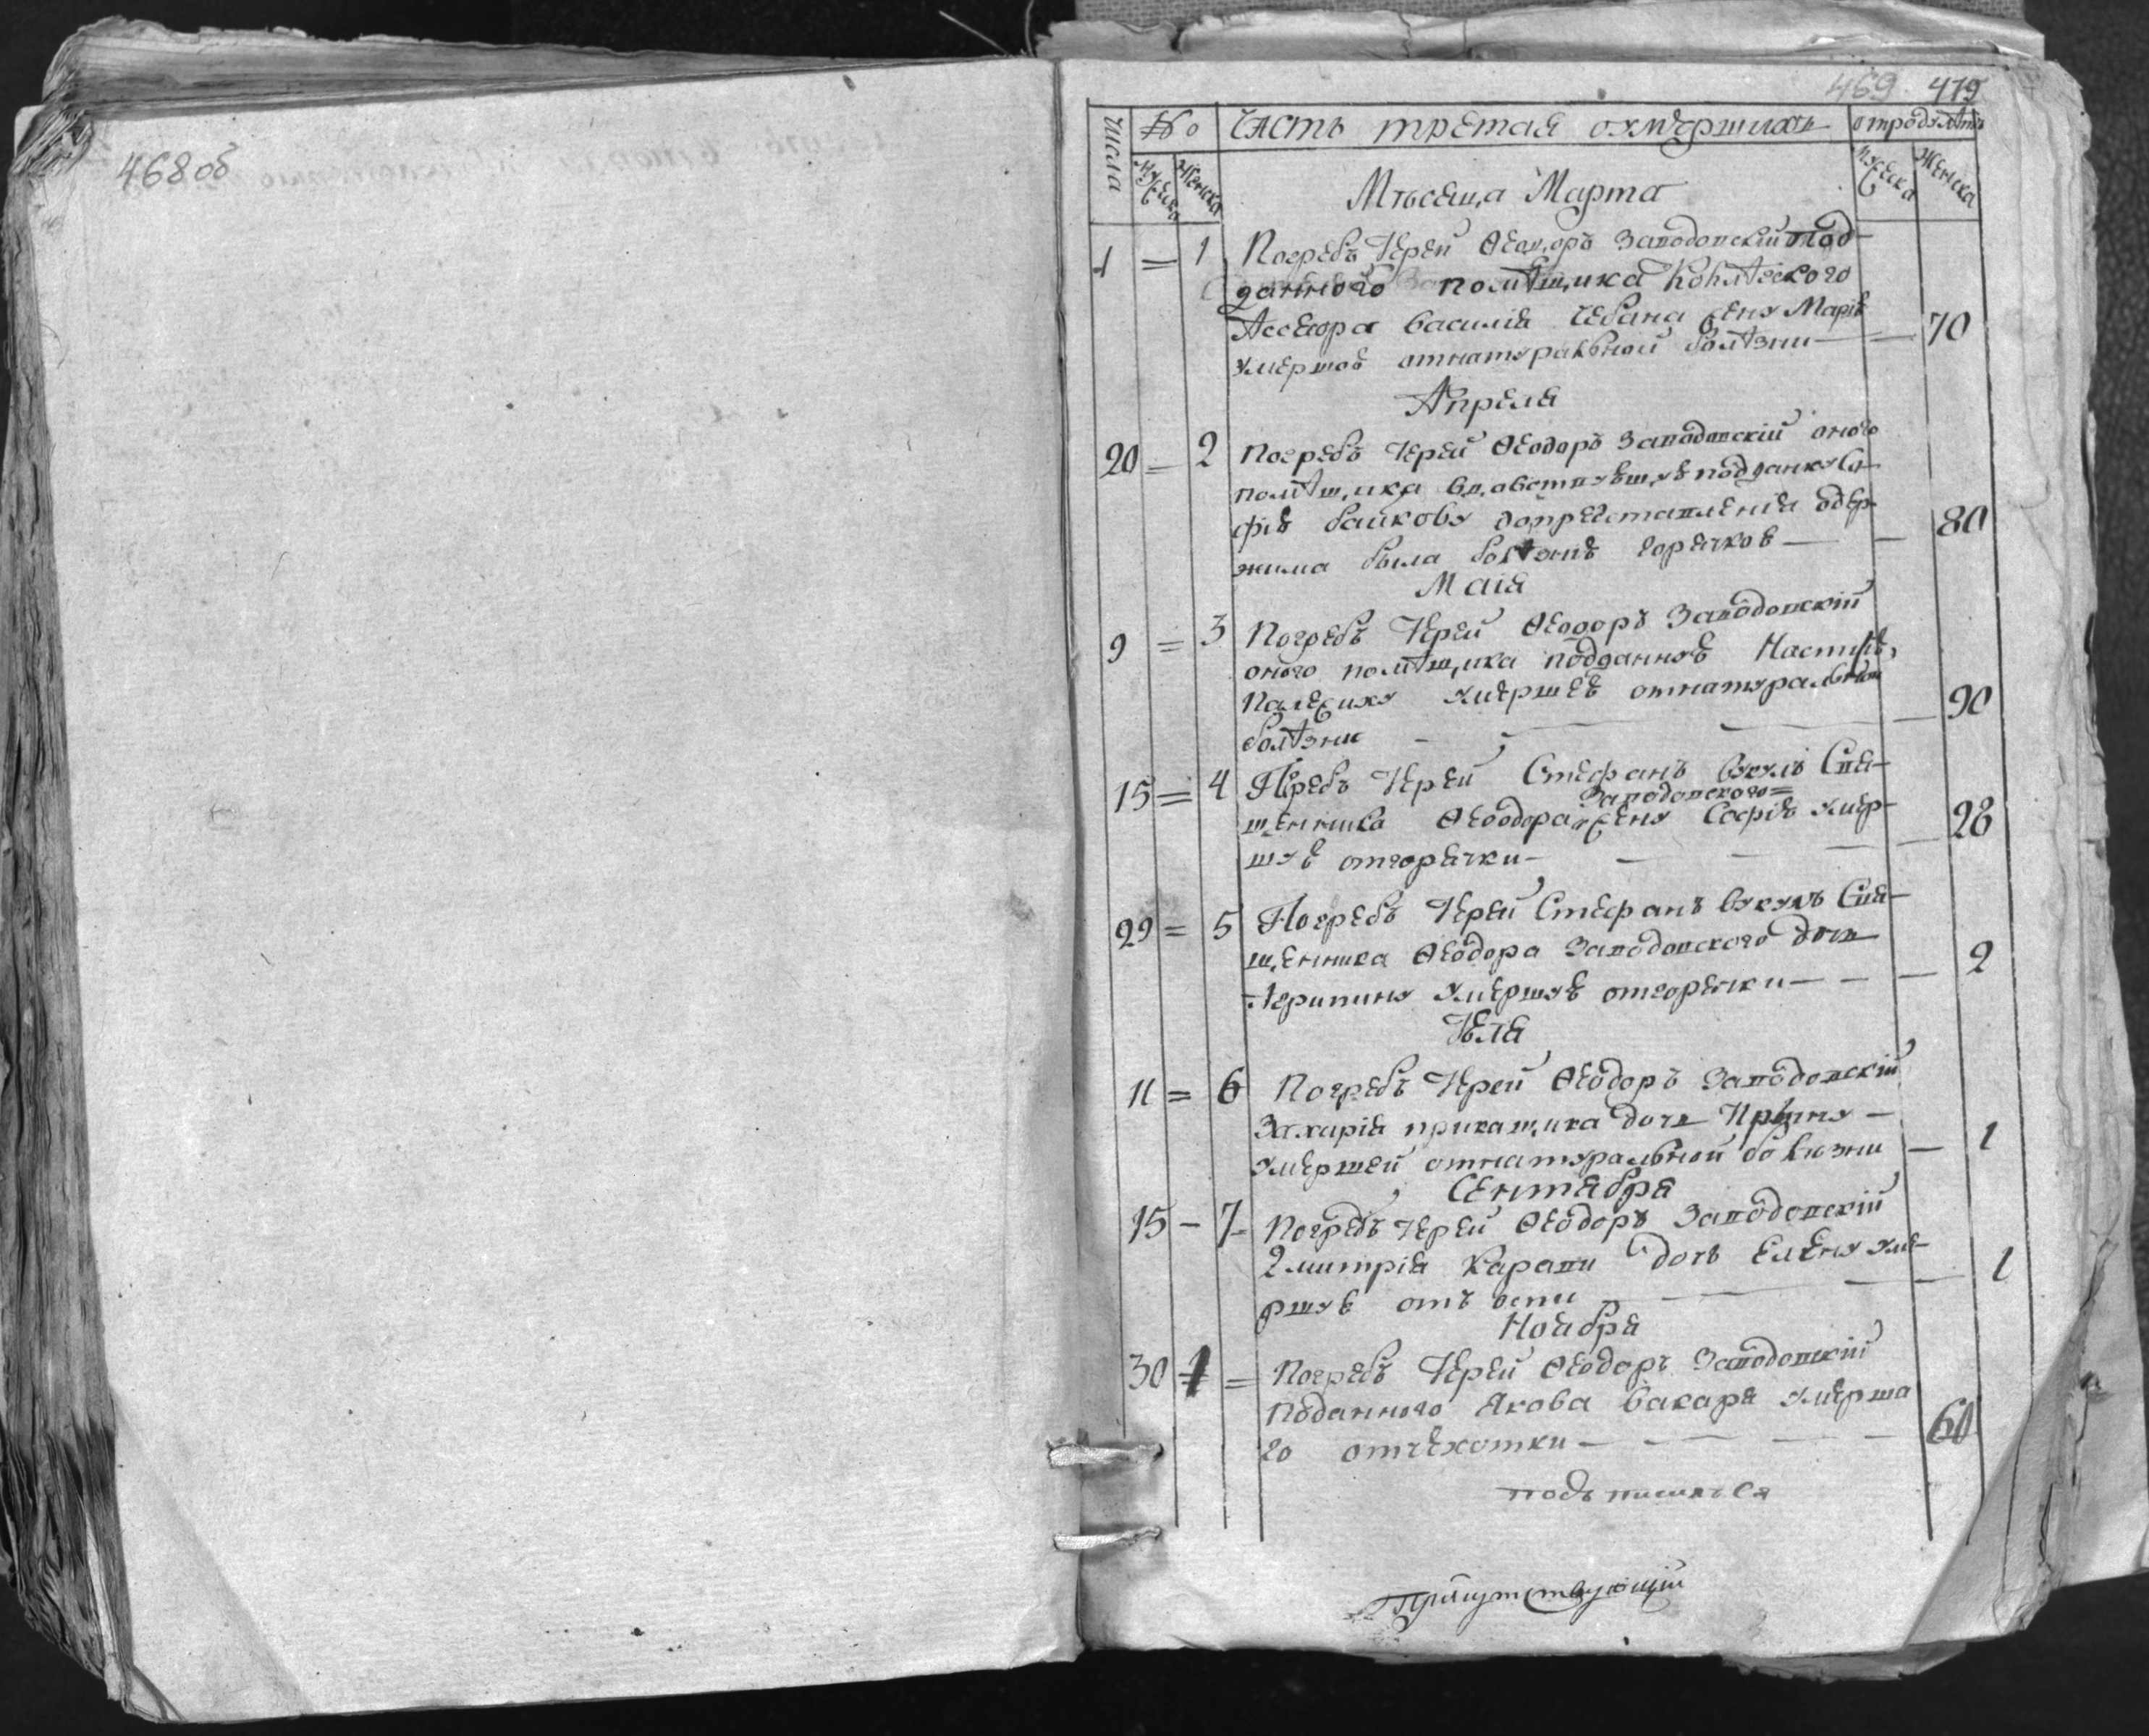 468 об
469. 479
Числа № Часть третая оумершихъ отроду лѣтъ
Мужеска Женска Мужеска Женска
Мѣсеца Марта
1 = 1 Погребъ Иерей Ѳеодоръ Заводовскій под-
данного помѣщика Колѣзского
Ассесора Василія Чебана жену Марію
умершов отнатуральной болѣзни — 70
Апреля
20 = 2 Погребъ Иерей Ѳеодоръ Заводовскій оного
помѣщика подданку Со-
фію Байкову допреставленія одер-
жима была болѣзнію горячков — 80
Маія
9 = 3 Погребъ Иерей Ѳеодоръ Заводовскій
оного помѣщика подданную Настію,
умершею отнатуральной
болѣзни — 90
15 = 4 Погребъ Иерей Стефанъ Вукулъ Свя-
Заводовского=
щенника Ѳеодора жену Софію умер-
шую отгорячки — 28
29 = 5 Погребъ Иерей Стефанъ Вукулъ Свя-
щенника Ѳеодора Заводовского дочь
Агрипину умершую отгорячки — 2
Июля
11 = 6 Погребъ Иерей Ѳеодоръ Заводовскій
Захирія прикащика дочь Ирину —
умершей отнатуральной болѣзни — 1
Сентября
15 - 7 - Погребъ Иерей Ѳеодоръ Заводовскій
Дмитрія дочь Елену уме-
ршую отъ оспи — 1
Ноября
30 1 = Погребъ Иерей Ѳеодоръ Заводовскій
поданного Якова Бакаря умерша
го отчехотки — 60
подъписался
Присутствующій